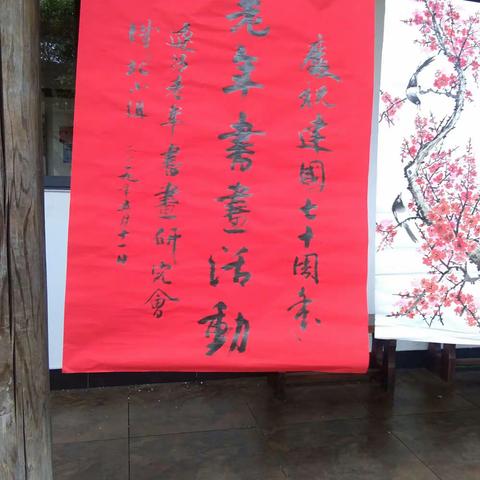 慶祝建國七十周年
年書畫活動
老年書畫研究會
小組 二〇一九年五月十一日